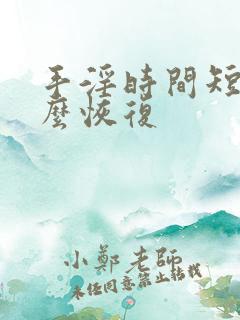 手淫時間短
麼恢復
小鄭老師
未经同意禁止转载